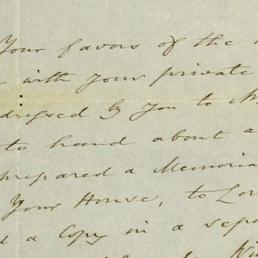 Your favors of the
with Your private
dressed by You to
to hand about a
prepared a Memoria
Your House, to Lor
d a Copy in a sepa